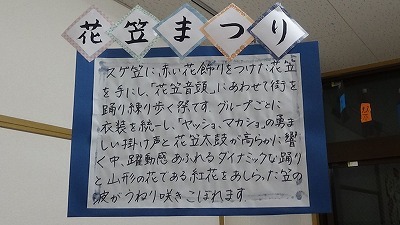 花笠まつり
スゲ笠に、赤い花飾りをつけた花笠
を手にし、「花笠音頭」にあわせて街を
踊り練り歩く祭です。グループごとに
衣装を統一し、「ヤッショ、マカショ」の勇ま
しい掛け声と花笠太鼓が高らかに響
く中、躍動感あふれるダイナミックな踊り
と山形の花である紅花をあしらった笠の
波がうねり咲きこぼれます